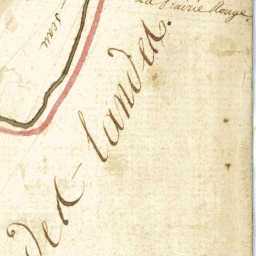 La Prairie Rouge.
des landes.